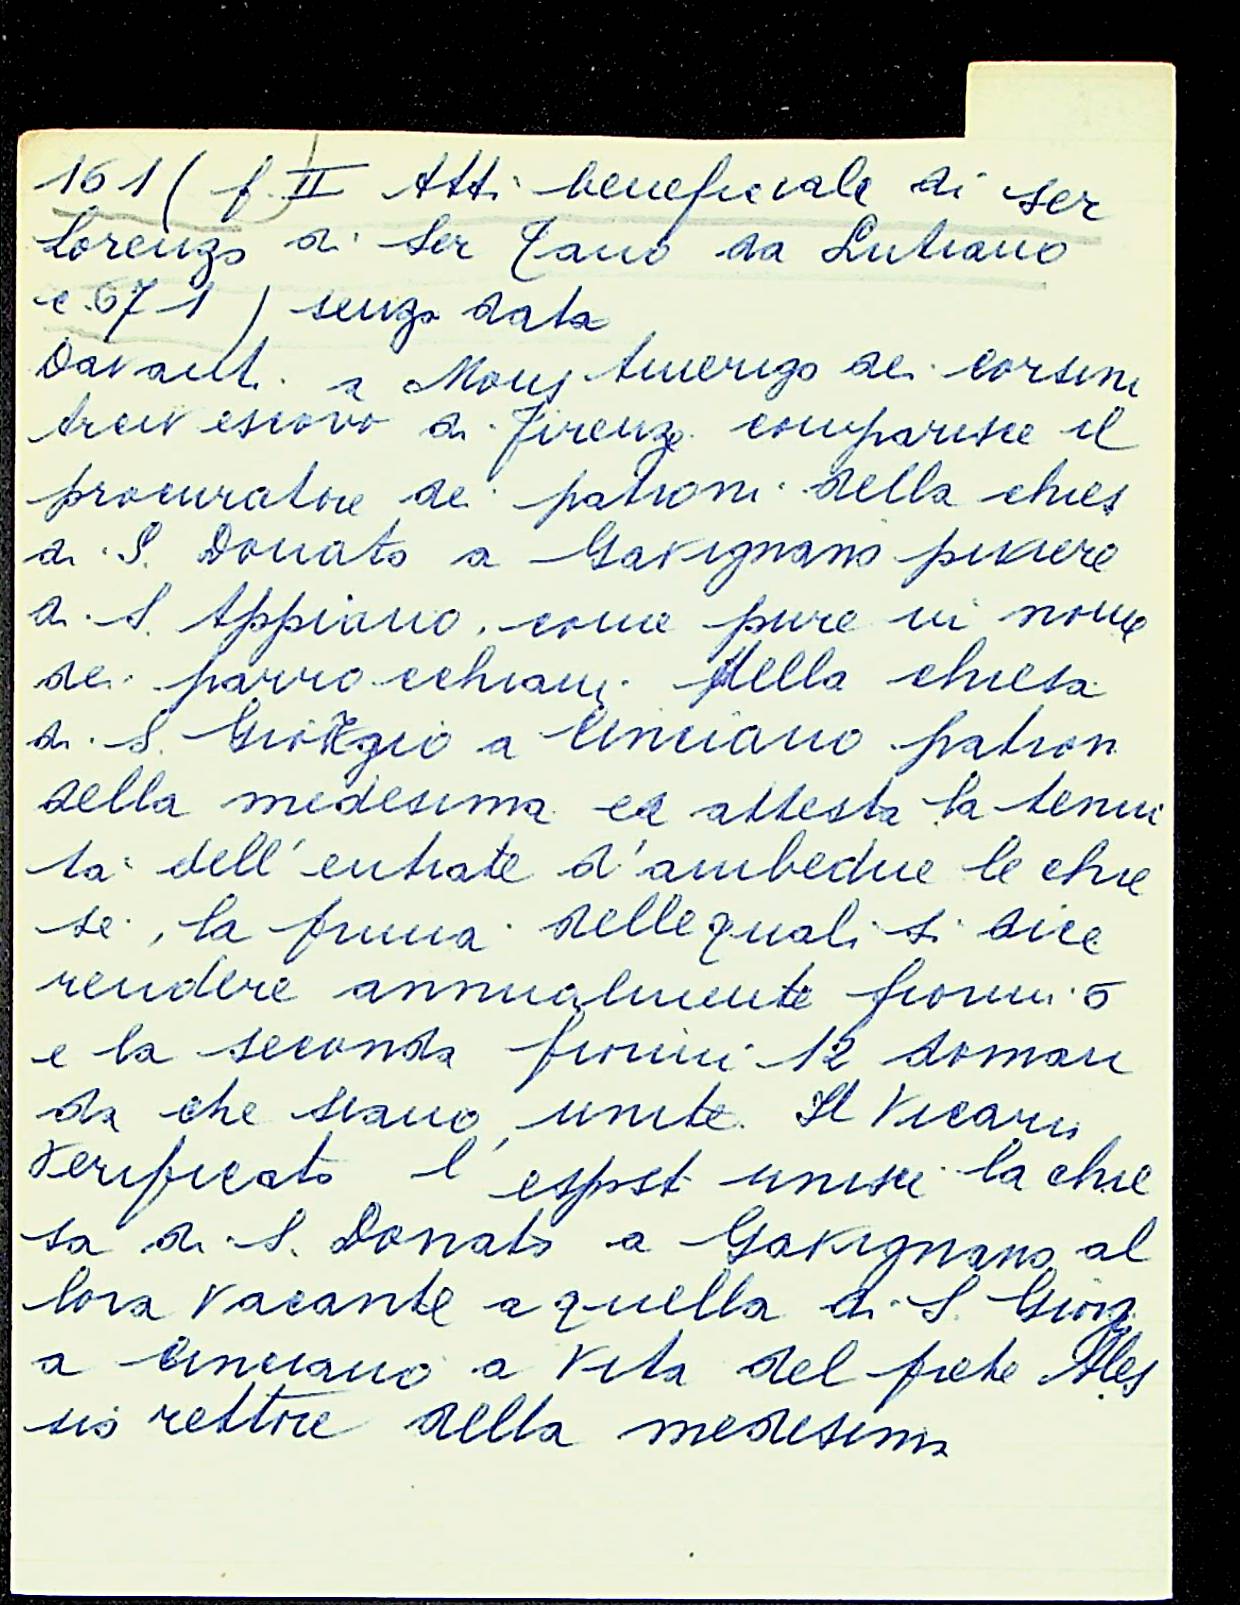 161 ( f II Atti beneficiale di ser
Lorenzo di Ser Tano da Lutiano
c. 671 ) senza data
Davanti a Mons Amerigo dei Corsini
Arcivescovo di Firenze comparisce il
procuratore dei patroni della chies
di S. Donato a Gavignano piviere
di S. Appiano, come pure in nome
dei parrocchiani della chiesa
di S. Giorgio a Cinciano patron
della medesima ed attesta la tenui
tà dell'entrate d'ambedue le chie
se, la prima delle quali si dice
rendere annualmente fiorini 5
e la seconda fiorini 12 doman
da che siano unite. Il Vicario
verificato l'espost unisce la chie
sa di S. Donato a Gavignano al
lora vacante a quella di S. Giorg
a Cinciano a vita del prete Ales
sio rettore della medesima